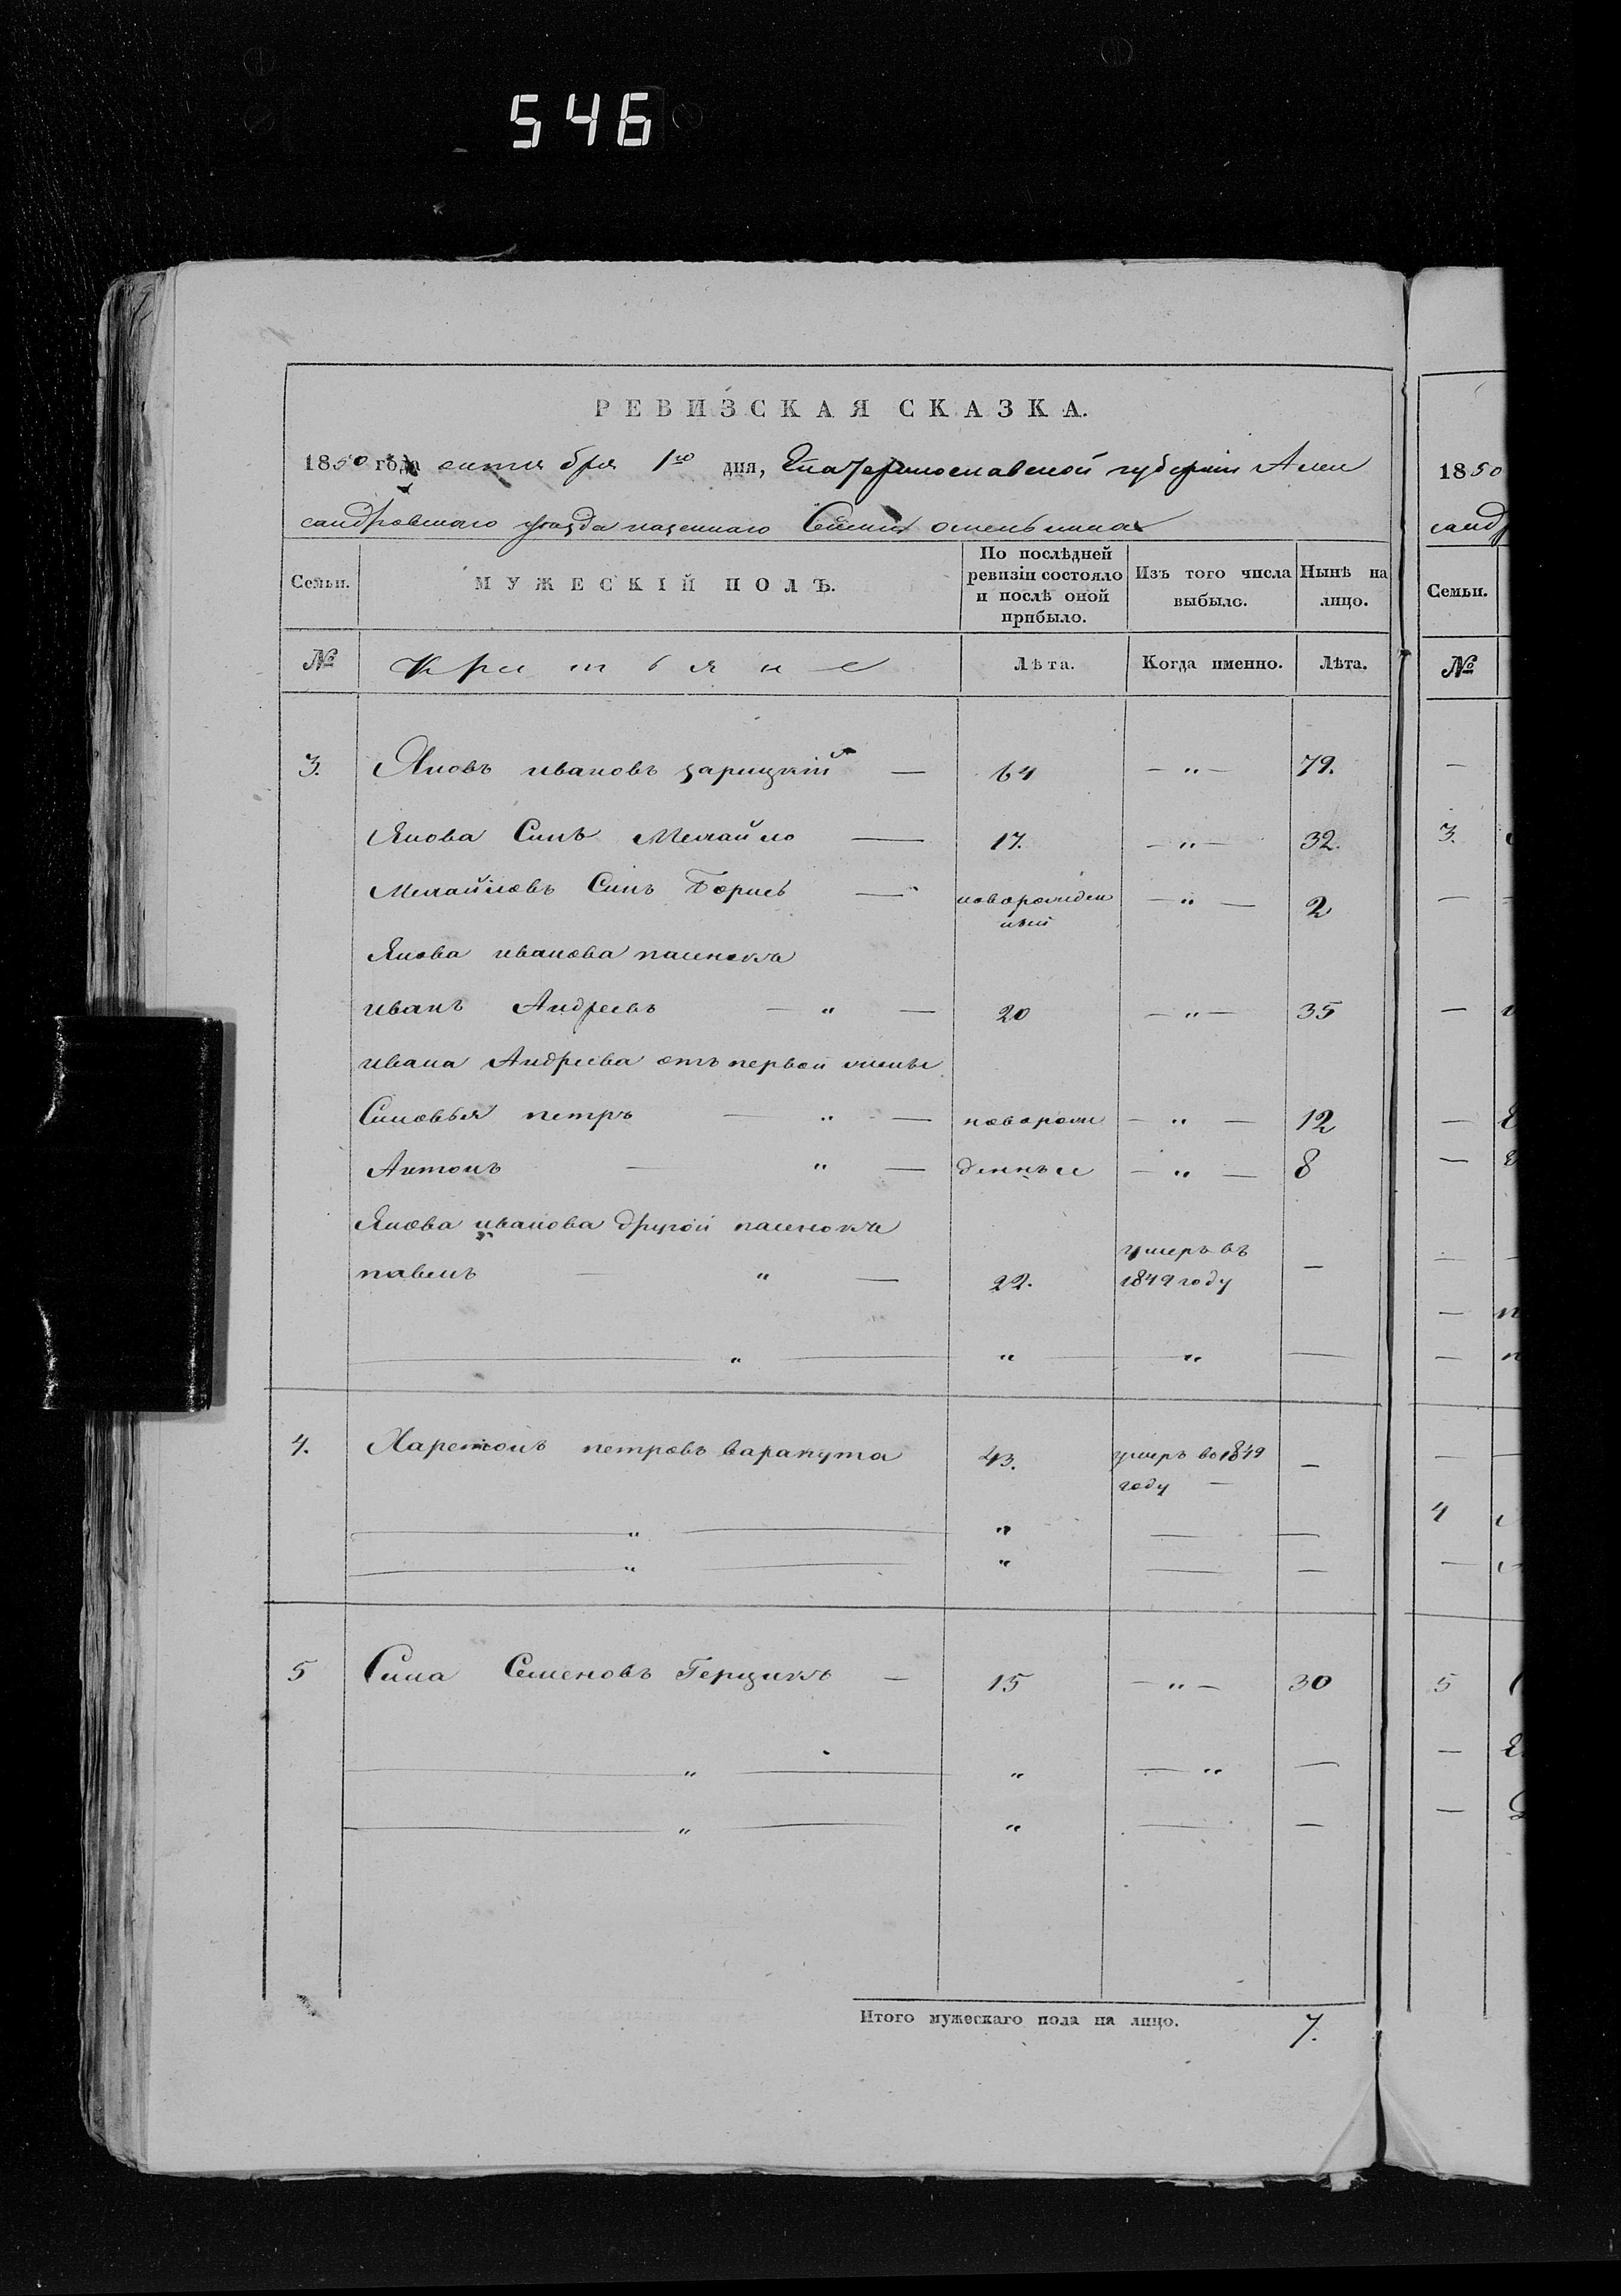 546
РЕВИЗСКАЯ СКАЗКА.
1850 года октя бря 1го дня, Екатеринославской губернии Алек
сандровскаго уезда казеннаго Селения
Семьи. МУЖЕСКІЙ ПОЛЪ. По послѣдней ревизіи состояло и послѣ оной прибыло. Изъ того числа выбыло. Нынѣ на лицо.
№ Крестьяне Лѣта. Когда именно. Лѣта.
3. Яковъ ивановъ зарицкій — 64 — " — 79.
Якова Синъ Михайло — 17. — " — 32.
Михайловъ Синъ Борисъ — новорожден ный — " — 2
Якова иванова пасинокъ
иванъ Андреевъ — " — 20 — " — 35
ивана Андреева отъ первой жены
Синовья петръ — " — новорож — " — 12
Антонъ — " — денные — " — 8
Якова иванова другой пасинокъ
павелъ — " — 22. умеръ въ 1849 году —
— " — " — " —
4. Харетонъ петровъ варакута 43. умеръ во 1849 году — —
— " — " — —
— " — " — —
5 Сила Семеновъ Герцикъ — 15 — " — 30
— " — " — " —
— " — " — —
Итого мужескаго пола на лицо. 7.
1850
санд
Семьи.
№
—
3.
—
—
—
—
—
—
—
—
4
—
5
—
—